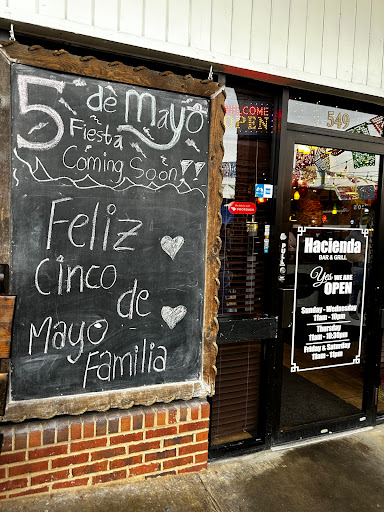 5 de Mayo
Fiesta
Coming Soon!!
Feliz
Cinco
de
Mayo
Familia
WELCOME
OPEN
549
PULL
Hacienda
BAR & GRILL
Yes WE ARE
OPEN
Sunday - Wednesday
11am - 10pm
Thursday
11am - 10:30pm
Friday & Saturday
11am - 11pm